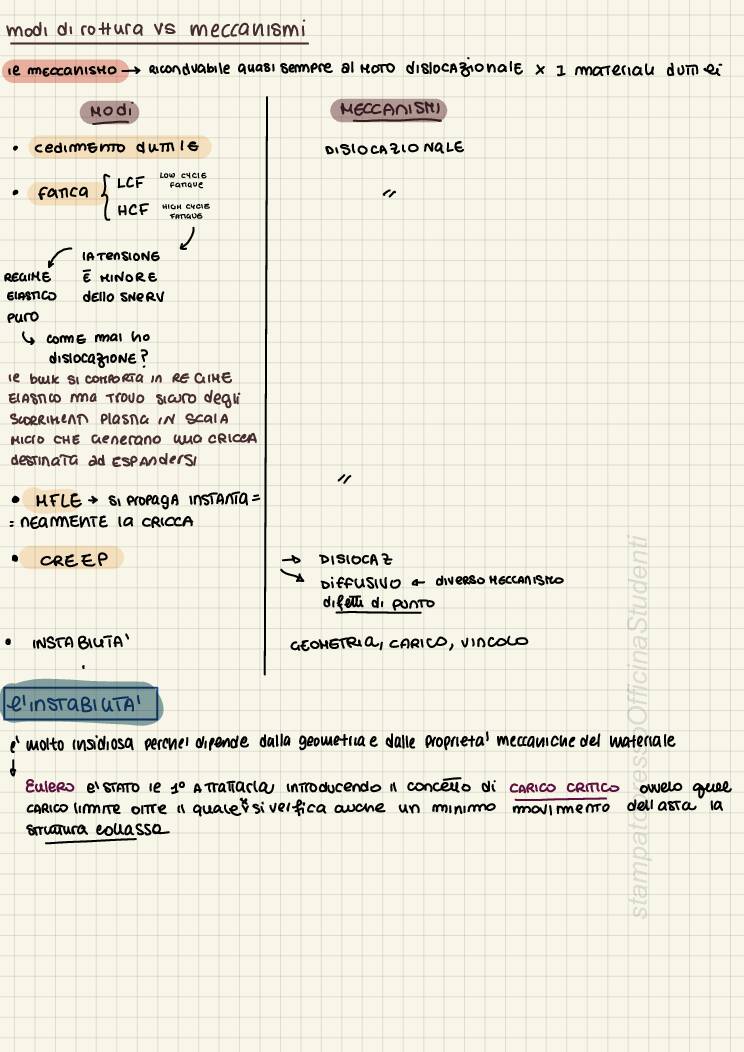 modi di rottura vs meccanismi
il meccanismo → riconducibile quasi sempre al moto dislocazionale x i materiali duttili
MODI
MECCANISMI
• cedimento duttile
DISLOCAZIONALE
• fatica { LCF LOW CYCLE FATIGUE
HCF HIGH CYCLE FATIGUE
"
LA TENSIONE
È MINORE
dello SNERV
REGIME
ELASTICO
PURO
↳ COME mai ho
dislocazione?
il bulk SI COMPORTA IN REGIME
ELASTICO ma TROVO sicuro degli
SCORRIMENTI PLASTICI IN SCALA
MICRO CHE Generano una CRICCA
destinata ad ESPANDERSI
"
• MFLE → SI PROPAGA INSTANTA=
=NEAMENTE la CRICCA
• CREEP
→ DISLOCAZ
→ DIFFUSIVO ← DIVERSO MECCANISMO
difetti di punto
• INSTABILITA'
GEOMETRIA, CARICO, VINCOLO
L'INSTABILITA'
e' molto insidiosa perche' dipende dalla geometria e dalle proprieta' meccaniche del materiale
↓
Eulero e' STATO il 1° A trattarla introducendo il concetto di CARICO CRITICO ovvero quel
CARICO limite oltre il quale si verifica anche un minimo movimento dell asta la
struttura collassa
stampatopressoOfficinaStudenti